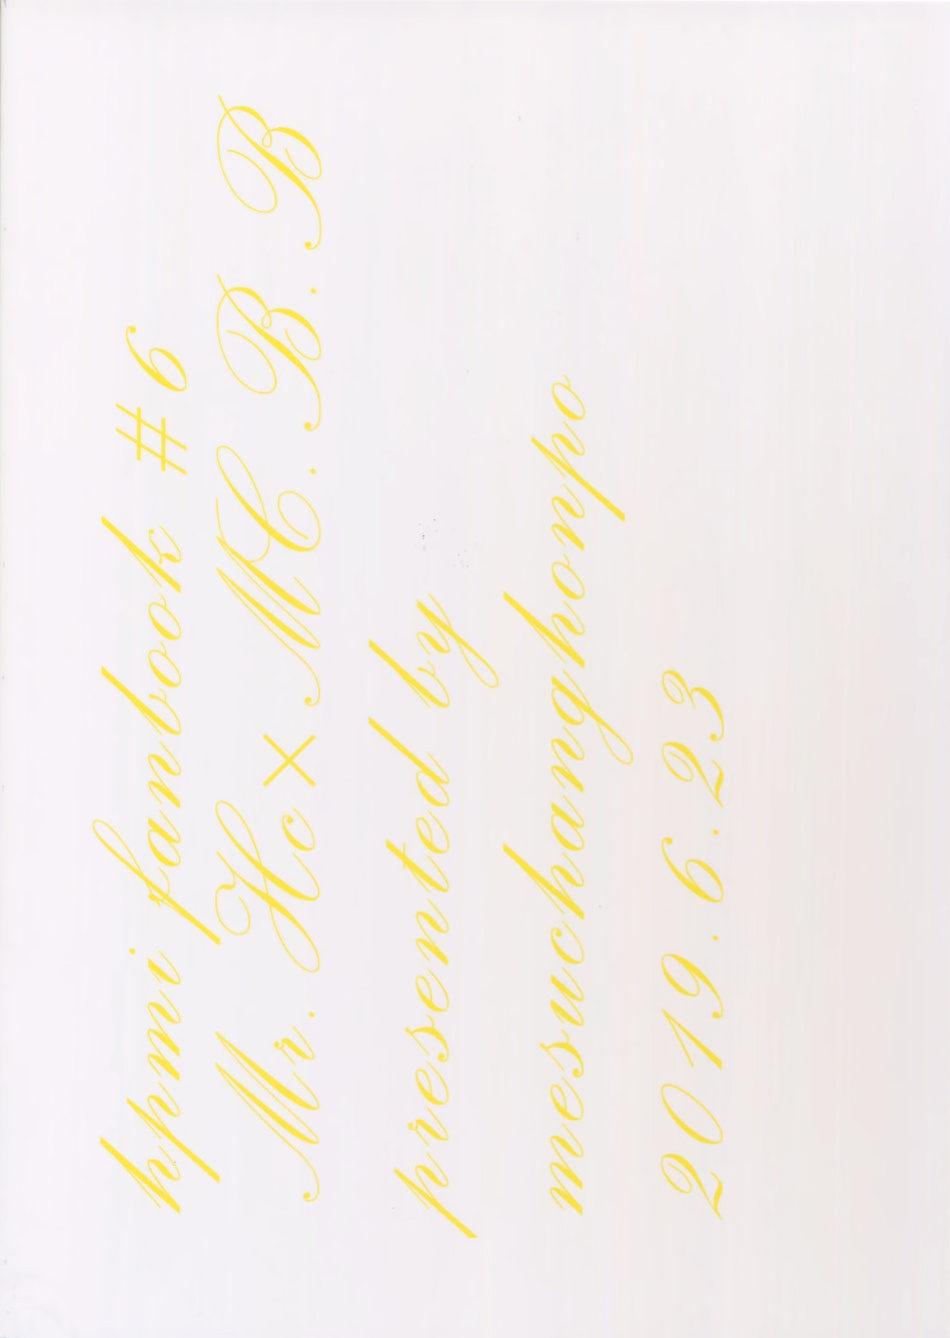 hpmi fanbook #6
Mr. Hc×MC. B. B
presented by
mesuchanghonpo
2019.6.23